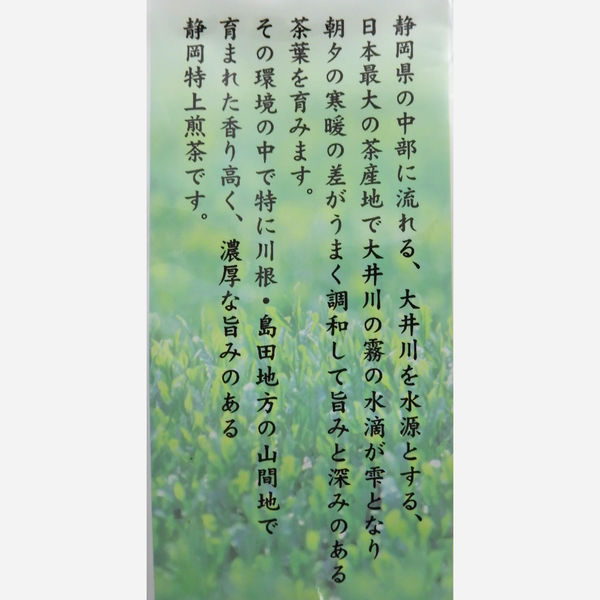 静岡県の中部に流れる、大井川を水源とする、
日本最大の茶産地で大井川の霧の水滴が雫となり
朝夕の寒暖の差がうまく調和して旨みと深みのある
茶葉を育みます。
その環境の中で特に川根・島田地方の山間地で
育まれた香り高く、濃厚な旨みのある
静岡特上煎茶です。